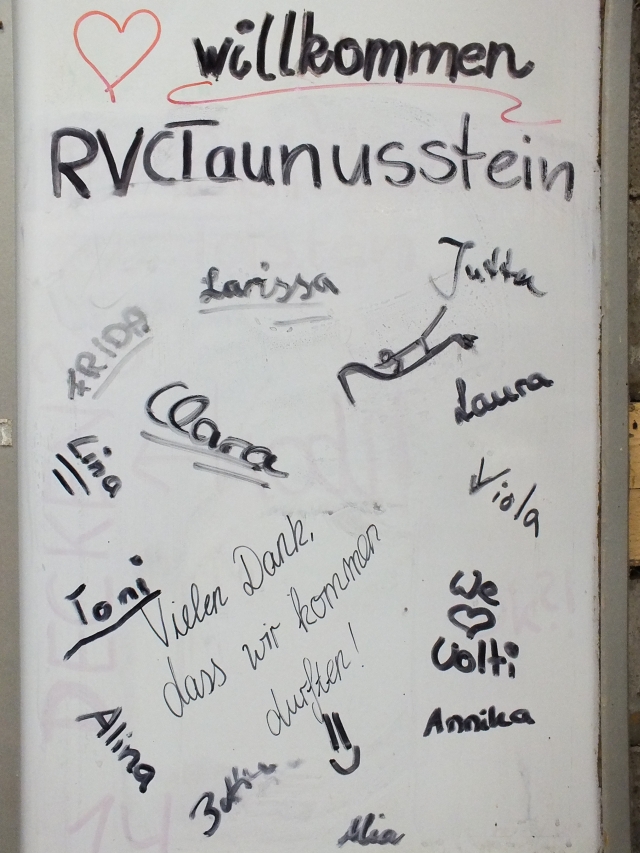 willkommen
RVCTaunusstein
Jutta
Larissa
FRIDA
Laura
Clara
Lina
Viola
Vielen Dank,
dass wir kommen
durften!
We
Volti
Toni
Annika
Alina
Mia